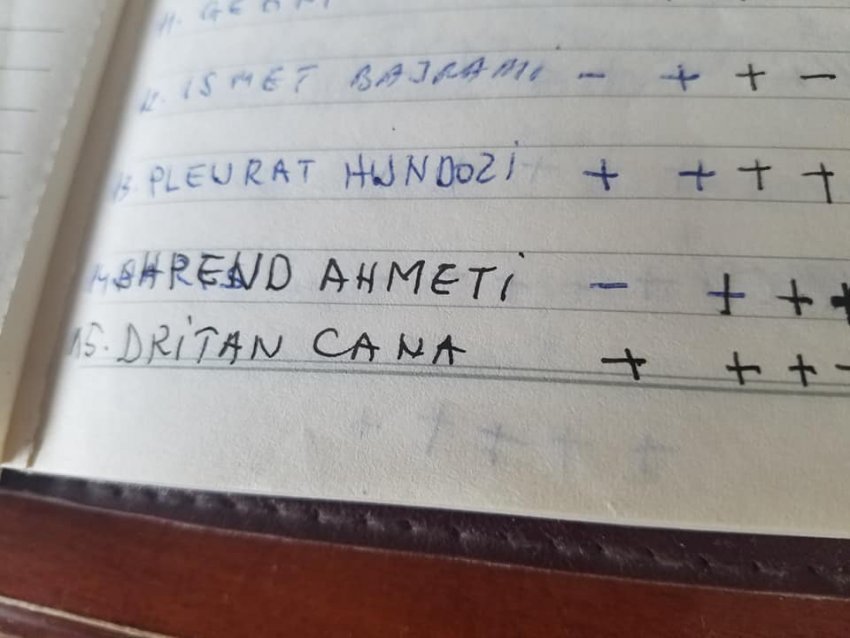 11. GEA
12. ISMET BAJRAMI - + + -
13. PLEURAT HUNDOZI + + + +
14. AHMETI - + + +
15. DRITAN CANA + + + -